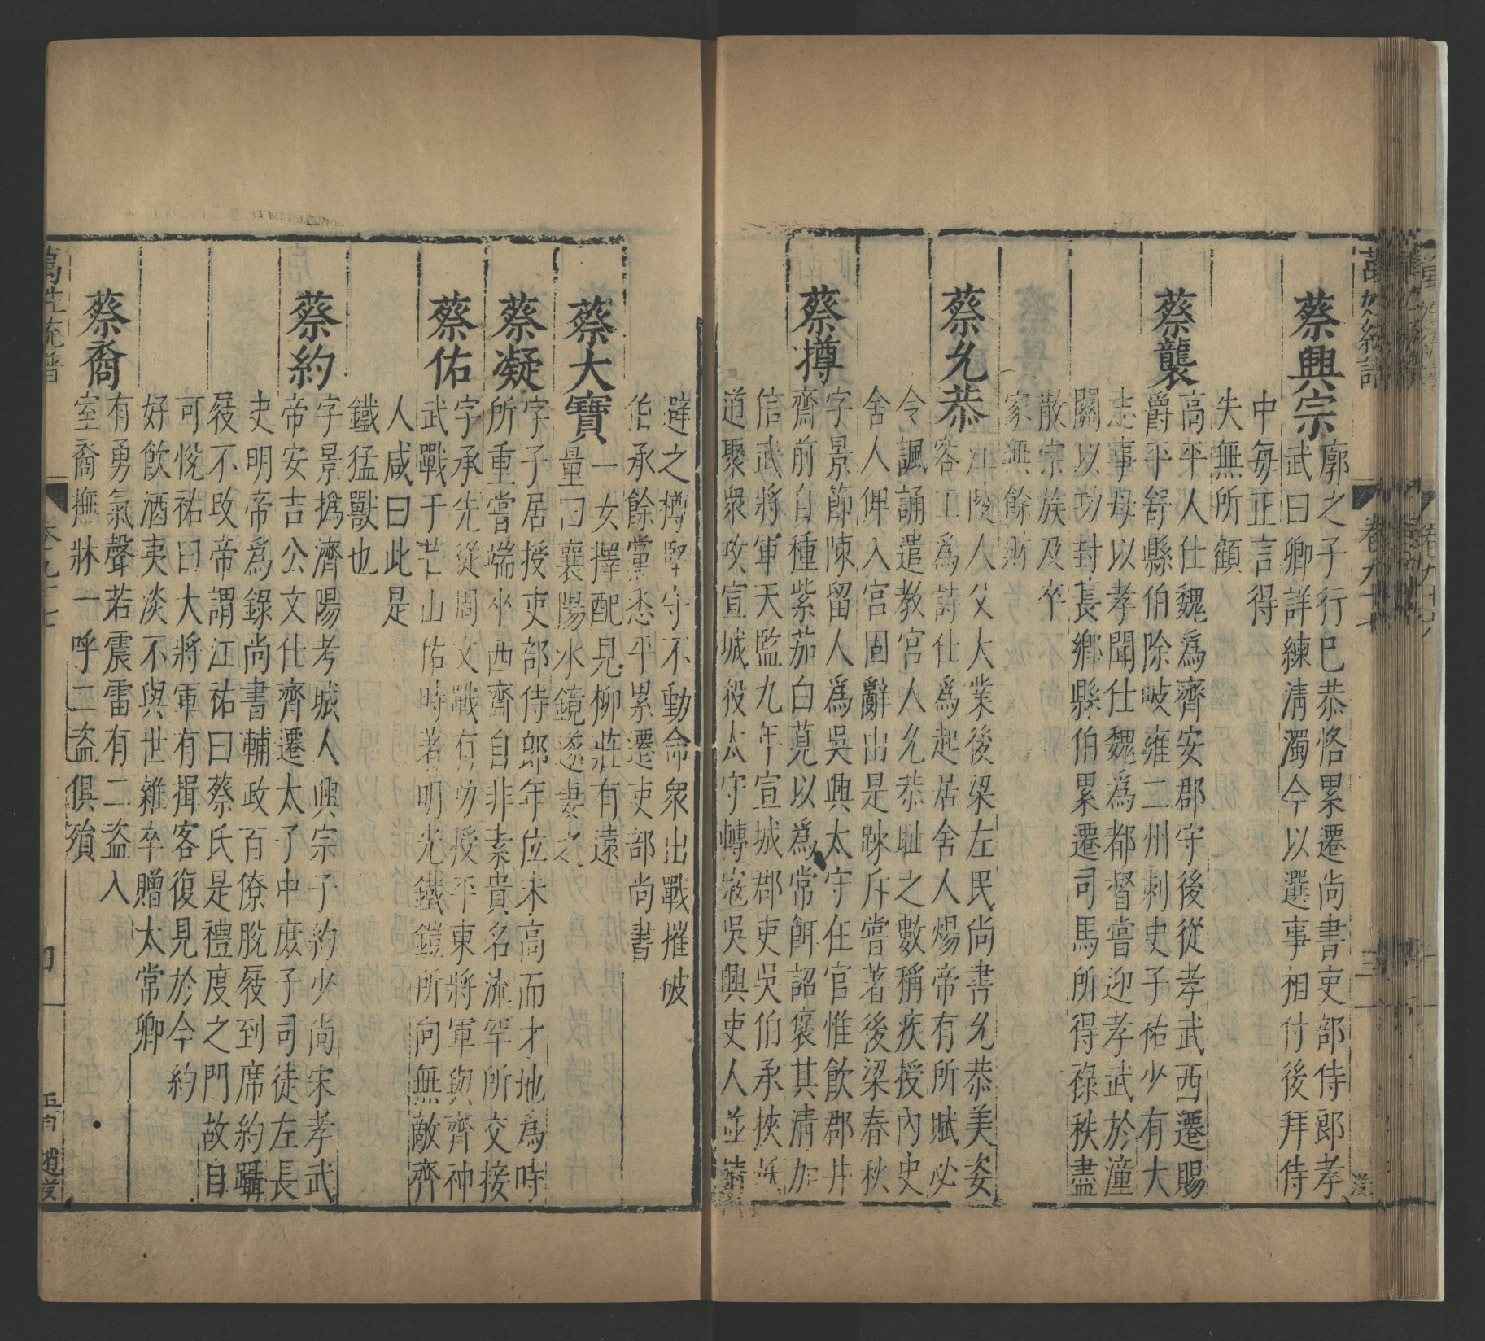 蔡興宗
廓之子行巳恭恪累遷尚書吏部侍郎孝
武曰卿詳練清濁今以選事相付後拜侍
中每正言得
失無所顧
蔡襲
高平人仕魏爲齊安郡守後從孝武西遷賜
爵平舒縣伯除岐雍二州刺史子祐少有大
志事母以孝聞仕魏爲都督嘗迎孝武於潼
關以功封萇鄉縣伯累遷司馬所得祿秩盡
散宗族及卒
家無餘財
蔡允恭
江陵人父大業後梁左民尚書允恭美姿
容工爲詩仕爲起居舍人煬帝有所賦必
令諷誦遣教宮人允恭耻之數稱疾授內史
舍人俾入宮固辭出是踈斥嘗著後梁春秋
蔡撙
字景節陳留人爲吳興太守在官惟飲郡井
齋前自種紫茄白莧以爲常餌詔褒其清加
信武將軍天監九年宣城郡吏吳伯承挾妖
道聚衆攻宣城殺太守轉寇吳興吏人並請
避之撙堅守不動命衆出戰摧破
伯承餘黨悉平累遷吏部尚書
蔡大寶
一女擇配見柳莊有遠
量曰襄陽水鏡遂妻之
蔡凝
字子居授吏部侍郎年位未高而才地爲時
所重嘗端坐西齋自非素貴名流罕所交接
蔡佑
字承先從周文戰有功授平東將軍與齊神
武戰于芒山佑時著明光鐵鎧所向無敵齊
人咸曰此是
鐵猛獸也
蔡約
字景撝濟陽考城人興宗子約少尚宋孝武
帝安吉公文仕齊遷太子中庶子司徒左長
史明帝爲錄尚書輔政百僚脫屐到席約躡
屐不攺帝謂江祐曰蔡氏是禮度之門故自
可悅祐曰大將軍有揖客復見於今約
好飲酒夷淡不與世雜卒贈太常卿
蔡裔
有勇氣聲若震雷有二盜入
室裔撫牀一呼二盜俱殞
萬姓統譜
卷九十七
三